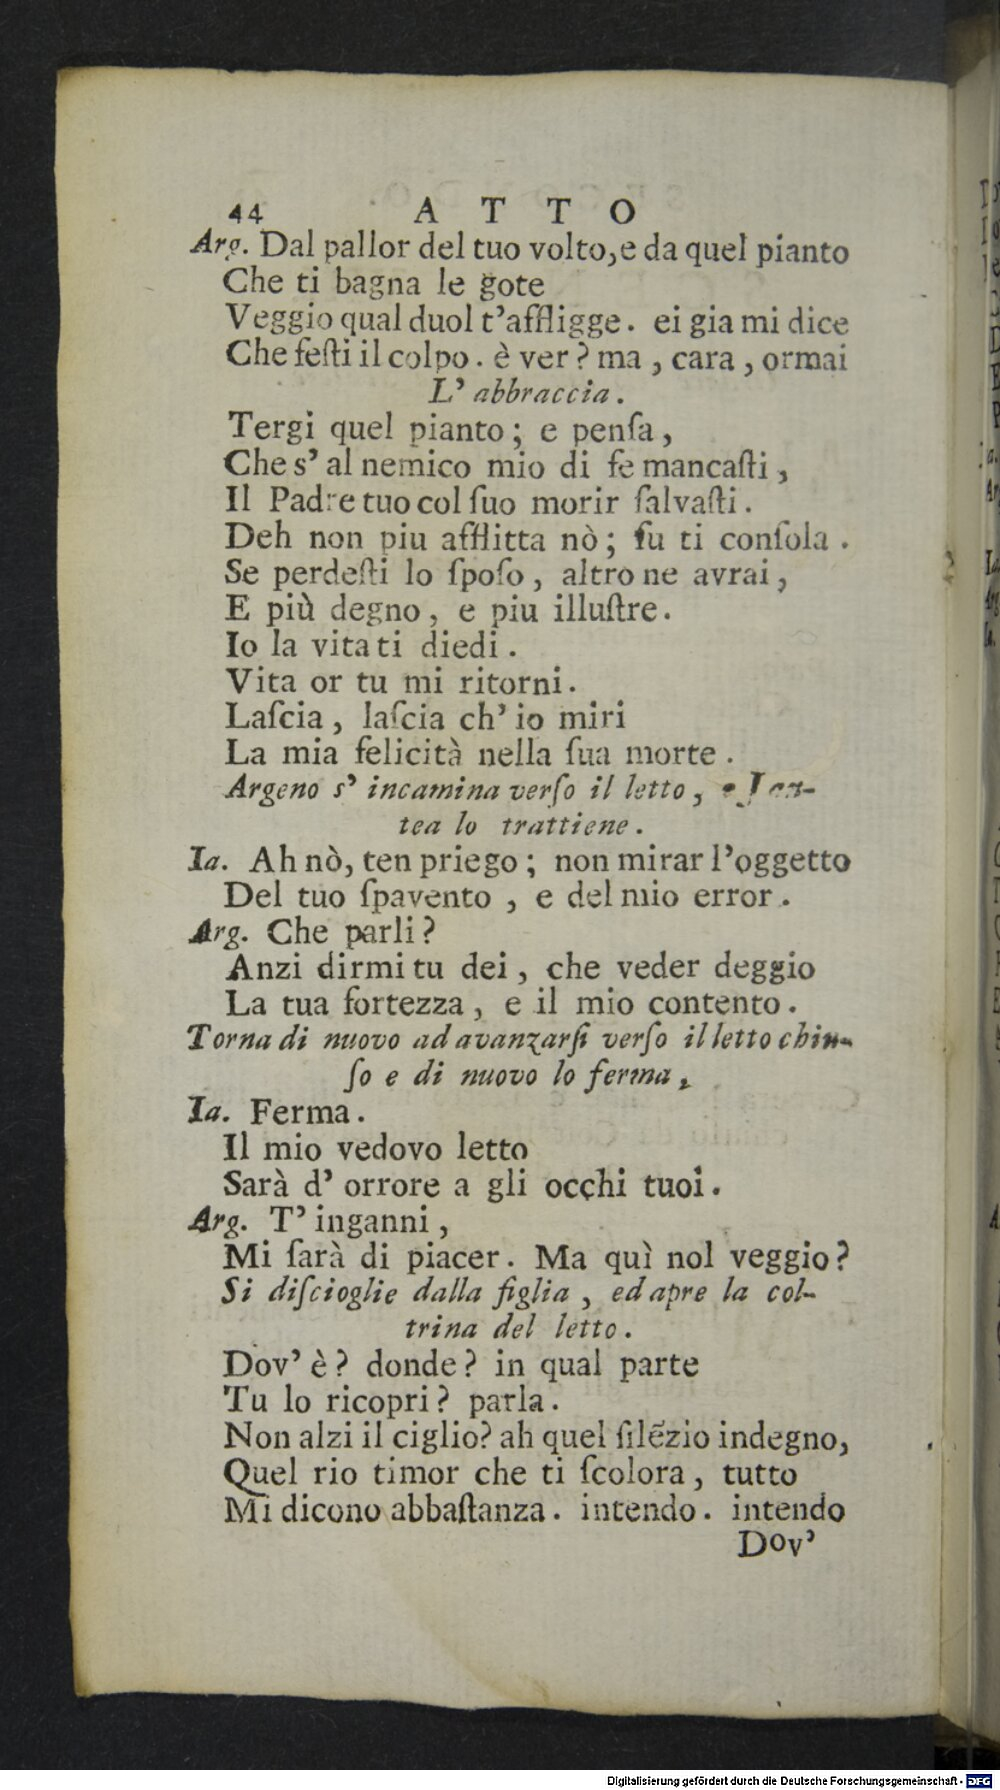 44 A T T O
Arg. Dal pallor del tuo volto, e da quel pianto
Che ti bagna le gote
Veggio qual duol t'affligge. ei gia mi dice
Che feſti il colpo. è ver? ma, cara, ormai
L' abbraccia.
Tergi quel pianto; e penſa,
Che s' al nemico mio di fe mancaſti,
Il Padre tuo col ſuo morir ſalvaſti.
Deh non piu afflitta nò; ſu ti conſola.
Se perdeſti lo ſpoſo, altro ne avrai,
E più degno, e piu illuſtre.
Io la vita ti diedi.
Vita or tu mi ritorni.
Laſcia, laſcia ch' io miri
La mia felicità nella ſua morte.
Argeno s' incamina verſo il letto, e Jan-
tea lo trattiene.
Ia. Ah nò, ten priego; non mirar l'oggetto
Del tuo ſpavento, e del mio error.
Arg. Che parli?
Anzi dirmi tu dei, che veder deggio
La tua fortezza, e il mio contento.
Torna di nuovo ad avanzarſi verſo il letto chiu-
ſo e di nuovo lo ferma,
Ia. Ferma.
Il mio vedovo letto
Sarà d' orrore a gli occhi tuoi.
Arg. T' inganni,
Mi ſarà di piacer. Ma quì nol veggio?
Si diſcioglie dalla figlia, ed apre la col-
trina del letto.
Dov' è? donde? in qual parte
Tu lo ricopri? parla.
Non alzi il ciglio? ah quel ſilẽzio indegno,
Quel rio timor che ti ſcolora, tutto
Mi dicono abbaſtanza. intendo. intendo
Dov'
Digitalisierung gefördert durch die Deutsche Forschungsgemeinschaft - DFG